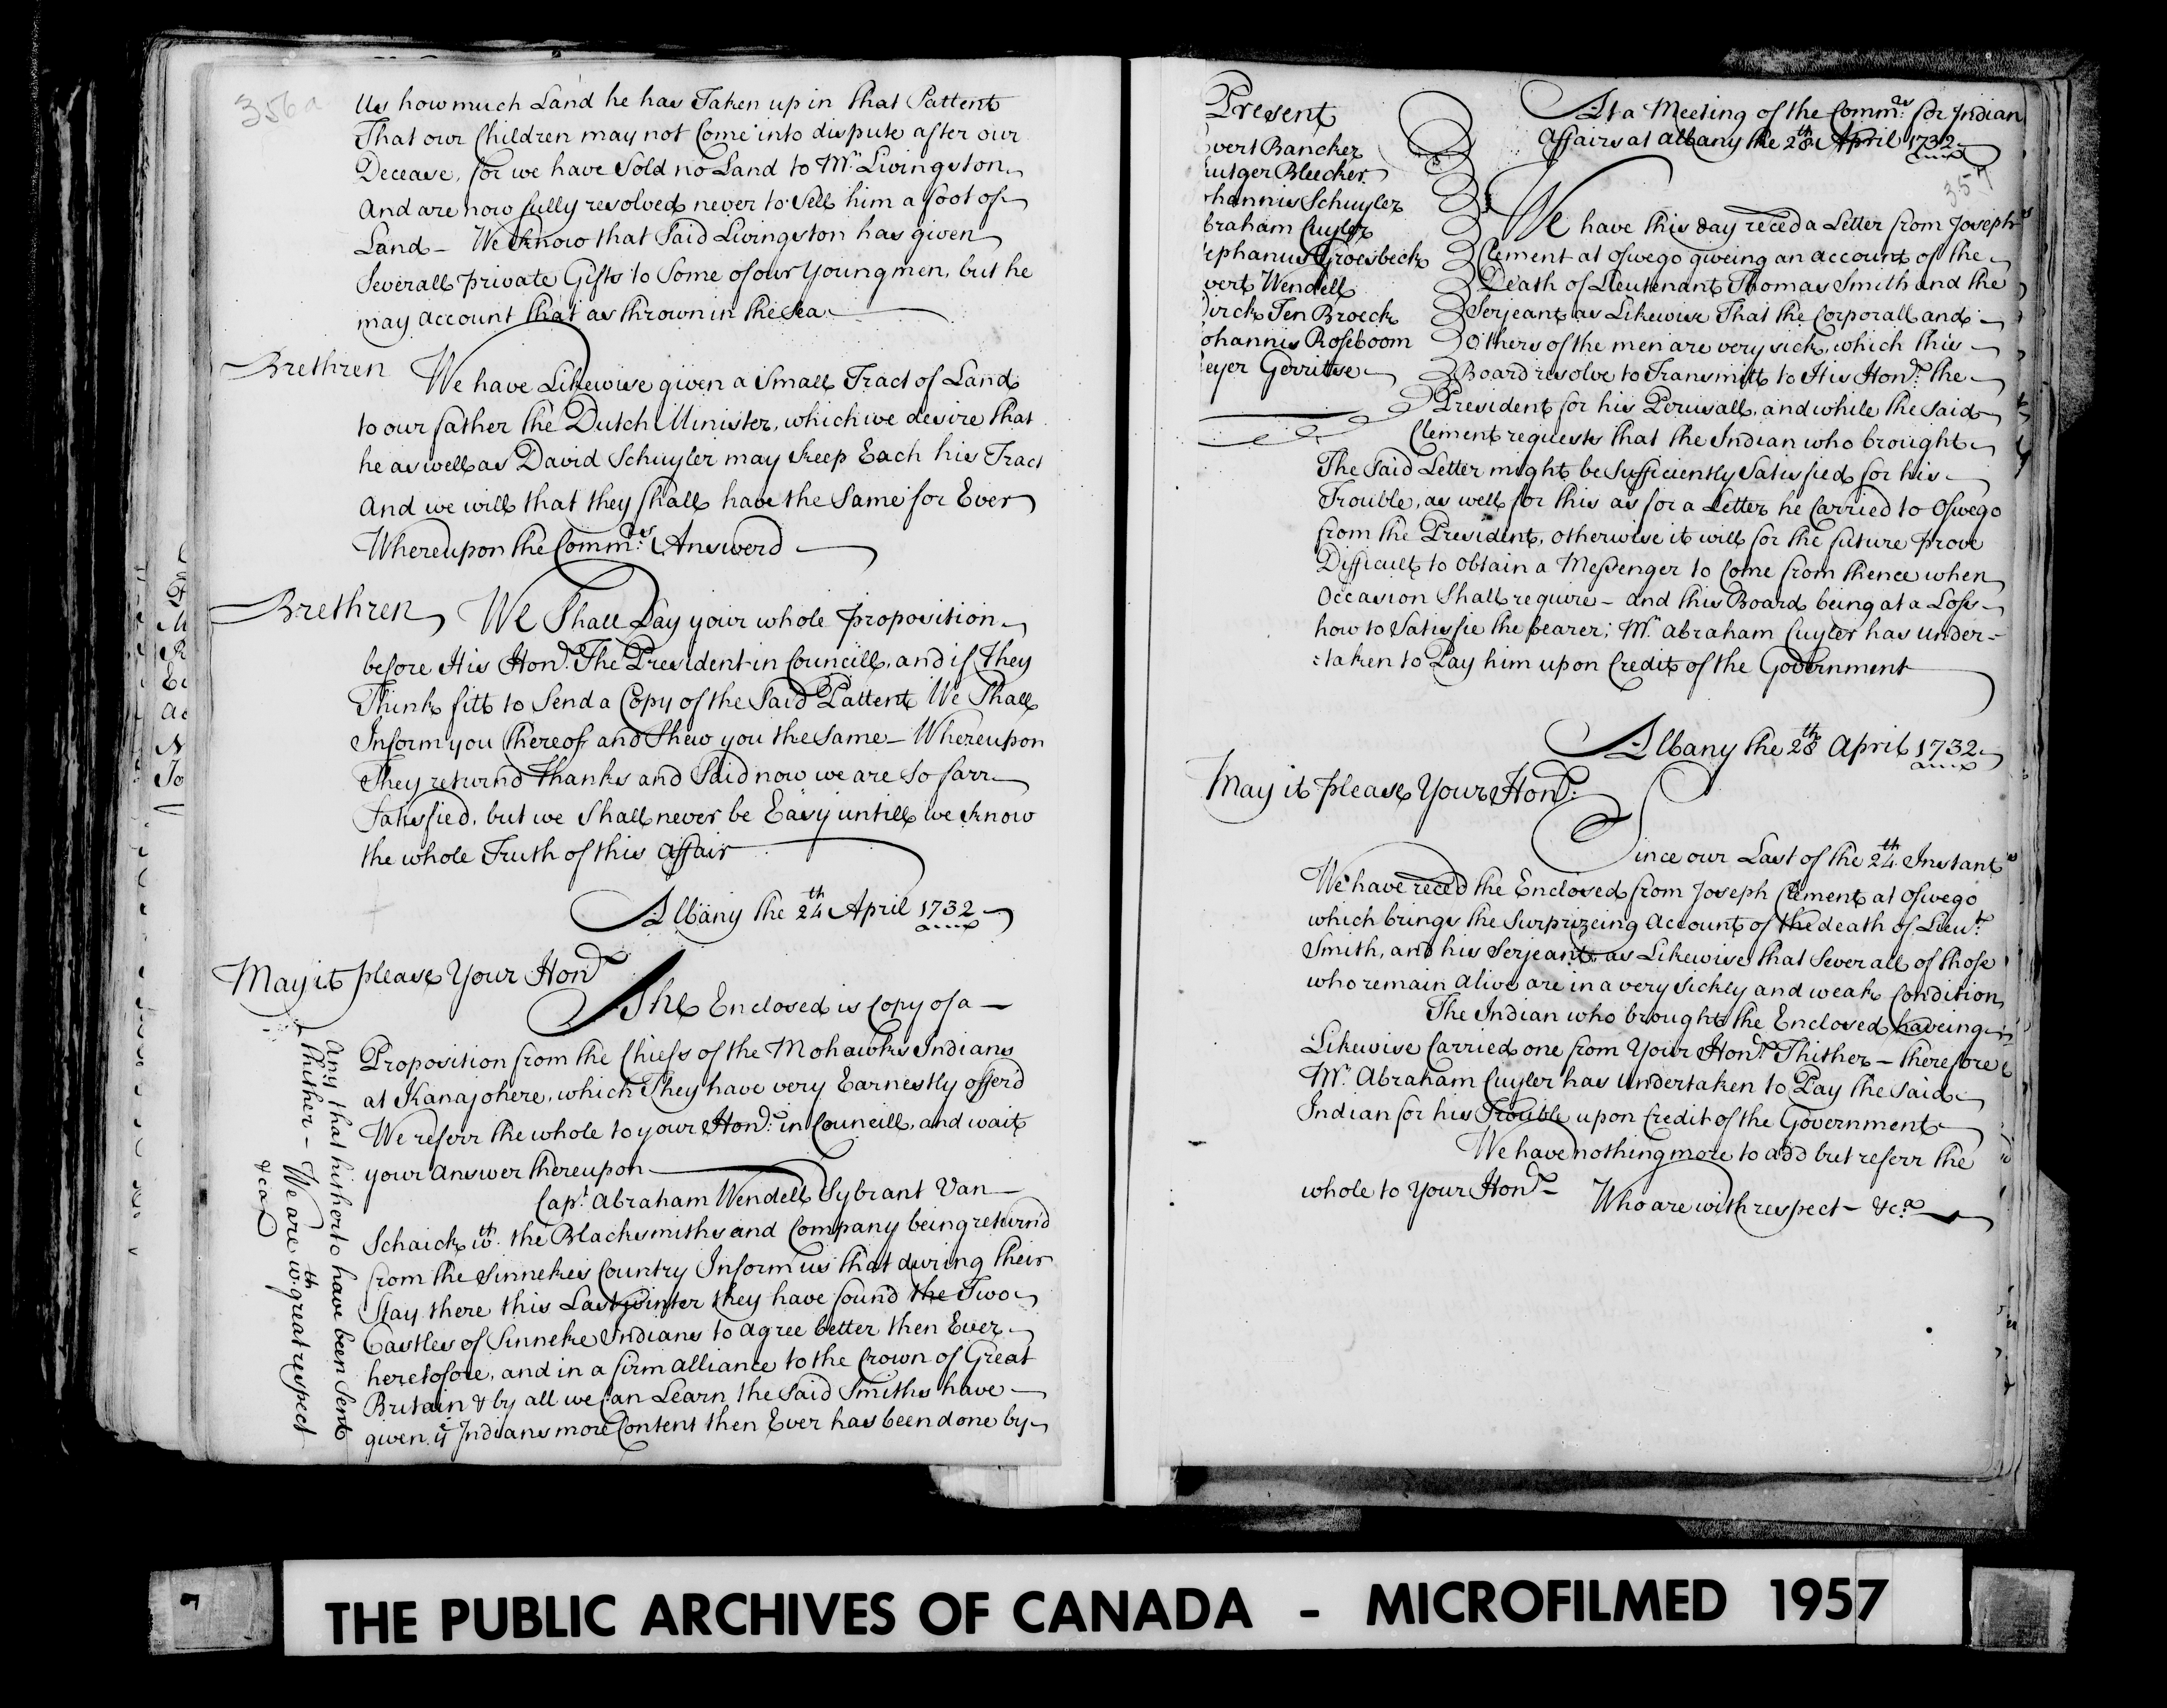 356a
Us how much Land he has Taken up in that Pattent
That our Children may not Come into dispute after our
Decease, for we have Sold no Land to Mr. Livingston
And are now fully resolved never to Sell him a foot of
Land – We know that Said Livingston has given
Severall private Gifts to Some of our Young men, but he
may account that as thrown in the Sea
Brethren We have Likewise given a Small Tract of Land
to our father the Dutch Minister, which we desire that
he as well as David Schuyler may keep Each his Tract
And we will that they Shall have the Same for Ever
Whereupon the Commrs. Answerd
Brethren We Shall Lay your whole Proposition
before His Honr. The President in Councill, and if They
Think fitt to Send a Copy of the Said Pattent We Shall
Inform you thereof and Shew you the Same – Whereupon
They returnd thanks and Said now we are So farr
Satisfied, but we Shall never be Easy untill we know
the whole Truth of this affair
Albany the 24th April 1732
May it please Your Honr
The Enclosed is Copy of a –
Proposition from the Chiefs of the Mohawks Indians
at Kanajohere, which They have very Earnestly offer'd
We referr the whole to your Honr. in Councill, and wait
your Answer thereupon
Capt. Abraham Wendell Sybrant Van –
Schaick wth. the Blacksmiths and Company being return'd
from the Sinnekes Country Inform us that during their
Stay there this Last winter they have found the Two
Castles of Sinneke Indians to agree better then Ever
heretofore, and in a firm alliance to the Crown of Great
Britain & by all we Can Learn the Said Smiths have –
given ye Indians more Content then Ever has been done by
any that hitherto have been Sent
thither – We are wth. great respect
&ca
Present
vert Bancker
utger Bleecker
hannis Schuyler
braham Cuyler
ephanus Groesbeck
vert Wendell
irck Ten Broeck
ohannis Roseboom
eyer Gerritse
At a Meeting of the Commrs. for Indian
Affairs at Albany the 28th April 1732
357
We have this day reced a Letter from Joseph
Clement at Oswego giveing an account of the
Death of Lieutenant Thomas Smith and the
Serjeant as Likewise That the Corporall and
Others of the men are very sick, which this
Board resolve to Transmitt to His Honr. the
President for his Perusall, and while the Said
Clement requests that the Indian who brought
The Said Letter might be Sufficiently Satisfied for his
Trouble, as well for this as for a Letter he Carried to Oswego
from the President, otherwise it will for the future prove
Difficult to obtain a Messenger to Come from thence when
Occasion Shall require – and this Board being at a Loss
how to Satisfie the bearer; Mr. Abraham Cuyler has under=
=taken to Pay him upon Credit of the Government
Albany the 28th April 1732
May it please Your Honr.
Since our Last of the 24th Instant
We have reced the Enclosed from Joseph Clement at Oswego
which brings the Surprizeing Account of the death of Lieut.
Smith, and his Serjeant as Likewise that Severall of those
who remain Alive are in a very Sickly and weak Condition
The Indian who brought the Enclosed haveing
Likewise Carried one from Your Honr. Thither – therefore
Mr. Abraham Cuyler has Undertaken to Pay the Said
Indian for his Trouble upon Credit of the Government
We have nothing more to add but referr the
whole to Your Honr – Who are with respect – &c.a
THE PUBLIC ARCHIVES OF CANADA - MICROFILMED 1957